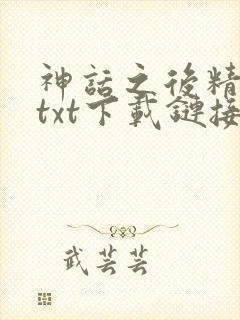 神話之後精
txt下載鏈接
武芸芸